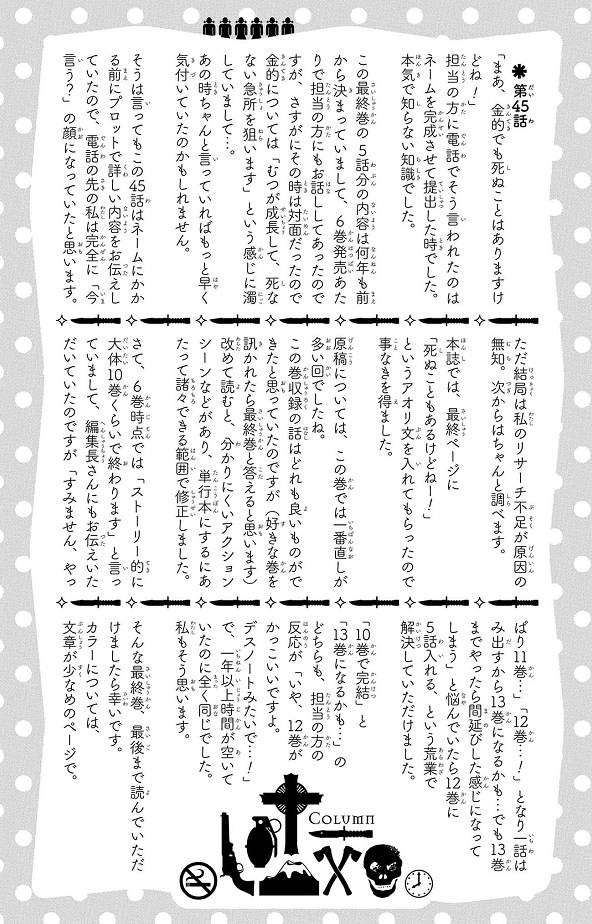 ✱ 第45話
「まあ、金的でも死ぬことはありますけ
どね!」
担当の方に電話でそう言われたのは
ネームを完成させて提出した時でした。
本気で知らない知識でした。
この最終巻の5話分の内容は何年も前
から決まっていまして、6巻発売あた
りで担当の方にもお話ししてあったので
すが、さすがにその時は対面だったので
金的については「むつが成長して、死な
ない急所を狙います」という感じに濁
していまして…。
あの時ちゃんと言っていればもっと早く
気付いていたのかもしれません。
そうは言ってもこの45話はネームにかか
る前にプロットで詳しい内容をお伝えし
ていたので、電話の先の私は完全に「今
言う?」の顔になっていたと思います。
ただ結局は私のリサーチ不足が原因の
無知。次からはちゃんと調べます。
本誌では、最終ページに
「死ぬこともあるけどねー!」
というアオリ文を入れてもらったので
事なきを得ました。
原稿については、この巻では一番直しが
多い回でしたね。
この巻収録の話はどれも良いものがで
きたと思っていたのですが(好きな巻を
訊かれたら最終巻と答えると思います)
改めて読むと、分かりにくいアクション
シーンなどがあり、単行本にするにあ
たって諸々できる範囲で修正しました。
さて、6巻時点では「ストーリー的に
大体10巻くらいで終わります」と言っ
ていまして、編集長さんにもお伝えいた
だいていたのですが「すみません、やっ
ぱり11巻…」「12巻…!」となり一話は
み出すから13巻になるかも…でも13巻
までやったら間延びした感じになって
しまう」と悩んでいたら12巻に
5話入れる、という荒業で
解決していただけました。
「10巻で完結」と
「13巻になるかも…」の
どちらも、担当の方の
反応が「いや、12巻が
かっこいいですよ。
デスノートみたいで…!」
で、一年以上時間が空いて
いたのに全く同じでした。
私もそう思います。
そんな最終巻、最後まで読んでいただ
けましたら幸いです。
カラーについては、
文章が少なめのページで。
Column